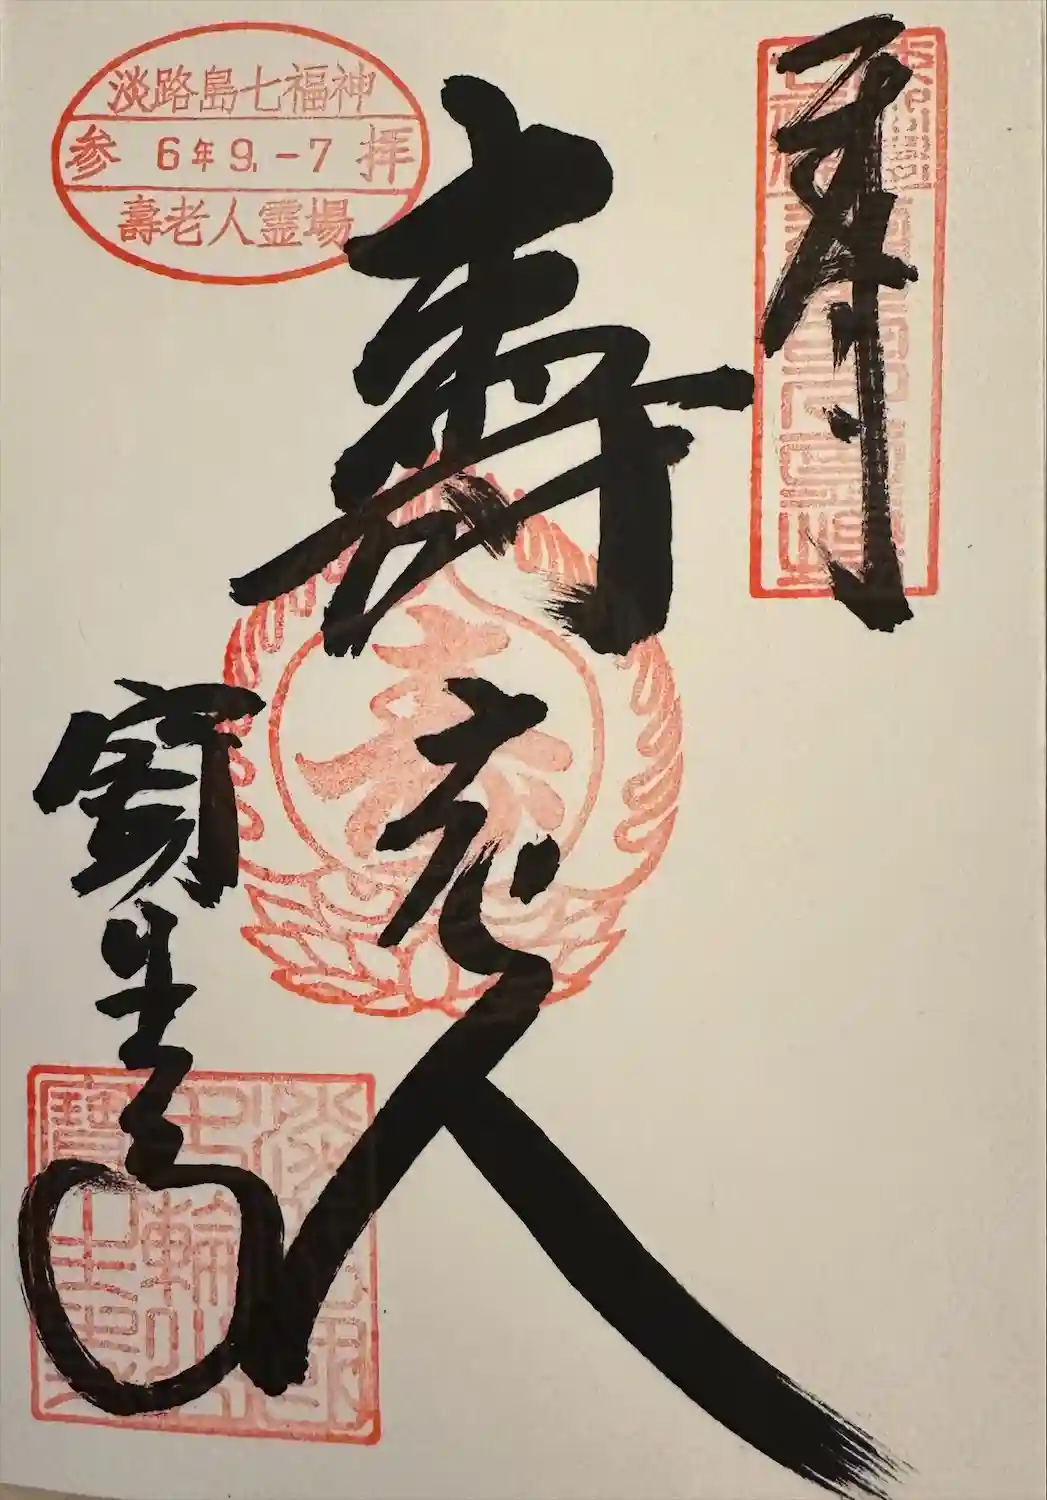 淡路島七福神
参 6年9.-7 拝
壽老人霊場
奉拝
寿老人
寳生寺